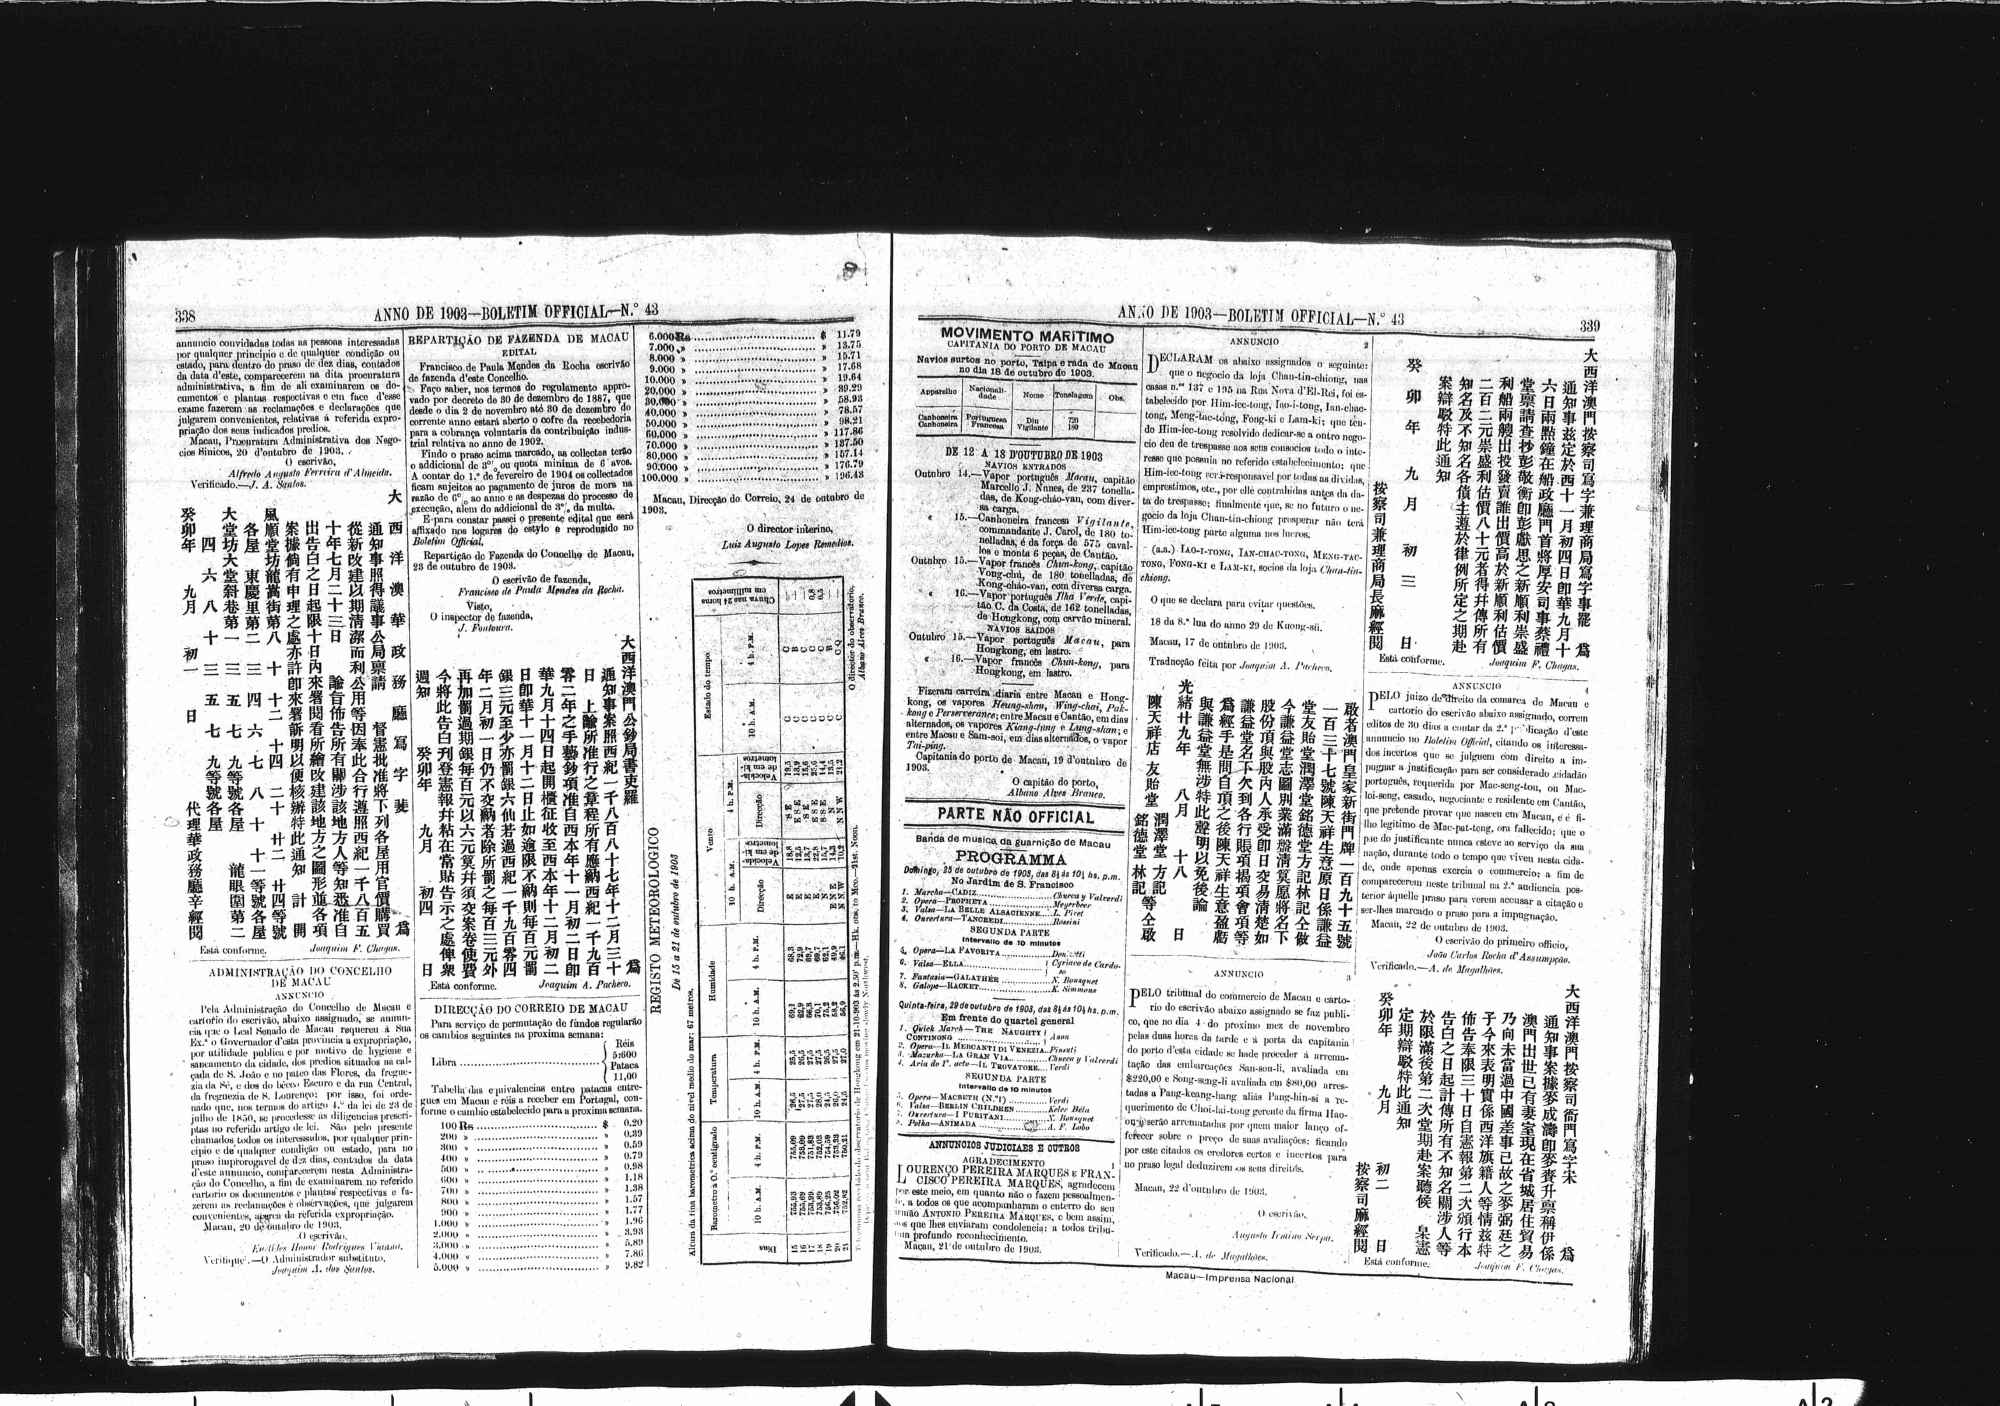 338
ANNO DE 1903—BOLETIM OFFICIAL—N.º 43
annuncio convidadas todas as pessoas interessadas
por qualquer principio e de qualquer condição ou
estado, para dentro do praso de dez dias, contados
da data d'este, comparecerem na dita procuratura
administrativa, a fim de ali examinarem os do-
cumentos e plantas respectivas e em face d'esse
exame fazerem as reclamações e declarações que
julgarem convenientes, relativas á referida expro-
priação dos seus indicados predios.
Macau, Procuratura Administrativa dos Nego-
cios Sinicos, 20 d'outubro de 1903.
O escrivão,
Alfredo Augusto Ferreira d'Almeida.
Verificado.—J. A. Santos.
大西洋澳華政務廳寫字號 爲
通知事照得議事公局禀請 督憲批准將下列各屋用官價購買
從新改建以期清潔而利公用等因奉此合行遵照西紀一千八百五
十年七月二十三日 諭旨佈告所有關涉該地方人等知悉准自
出告白之日起限十日內來署閱看所繪改建該地方之圖形並各項
案據倘有申理之處亦許卽來署訴明以便核辦特此通知 計開
風順堂坊龍嵩街第八 十 十二 十四 二十 廿二 廿四等號
各屋 東慶里第二 三 四 六 七 八 十 十一等號各屋
大堂坊大堂斜巷第一 三 五 七 九等號各屋 龍眼圍第二
四 六 八 十 三 五 七 九等號各屋
癸卯年 九月 初一 日 代理華政務廳辛經閱
Está conforme. Joaquim F. Chagas.
ADMINISTRAÇÃO DO CONCELHO
DE MACAU
ANNUNCIO
Pela Administração do Concelho de Macau e
cartorio do escrivão, abaixo assignado, se annun-
cia que o Leal Senado de Macau requereu á Sua
Ex.ª o Governador d'esta provincia a expropriação,
por utilidade publica e por motivo de hygiene e
saneamento da cidade, dos predios situados na cal-
çada de S. João e no pateo das Flores, da fregue-
zia da Sé, e dos do bêco Escuro e da rua Central,
da freguezia de S. Lourenço: por isso, foi orde-
nado que, nos termos do artigo 4.º da lei de 23 de
julho de 1850, se procedesse as diligencias prescri-
ptas no referido artigo de lei. São pelo presente
chamados todos os interessados, por qualquer prin-
cipio e de qualquer condição ou estado, para no
praso improrogavel de dez dias, contados da data
d'este annuncio, comparecerem nesta Administra-
ção do Concelho, a fim de examinarem no referido
cartorio os documentos e plantas respectivas e fa-
zerem as reclamações e observações, que julgarem
convenientes, ácerca da referida expropriação.
Macau, 20 de outubro de 1903.
O escrivão,
Euclides Honor Rodrigues Vianna.
Verifiquei.—O Administrador substituto,
Joaquim A. dos Santos.
REPARTIÇÃO DE FAZENDA DE MACAU
EDITAL
Francisco de Paula Mendes da Rocha escrivão
de fazenda d'este Concelho.
Faço saber, nos termos do regulamento appro-
vado por decreto de 30 de dezembro de 1887, que
desde o dia 2 de novembro até 30 de dezembro do
corrente anno estará aberto o cofre da recebedoria
para a cobrança voluntaria da contribuição indus-
trial relativa ao anno de 1902.
Findo o praso acima marcado, as collectas terão
o addicional de 3% ou quota minima de 6 avos.
A contar do 1.º de fevereiro de 1904 os collectados
ficam sujeitos ao pagamento de juros de mora na
razão de 6% ao anno e as despezas do processo de
execução, alem do addicional de 3% da multa.
E para constar passei o presente edital que será
affixado nos logares do estylo e reproduzido no
Boletim Official.
Repartição de Fazenda do Concelho de Macau,
23 de outubro de 1903.
O escrivão de fazenda,
Francisco de Paula Mendes da Rocha.
Visto,
O inspector de fazenda,
J. Fontoura.
大西洋澳門公鈔局書吏羅 爲
通知事案照西紀一千八百八十七年十二月三十
日 上諭所准行之章程所有應納西紀一千九百
零二年之手藝鈔項准自西本年十一月初二日卽
華九月十四日起開櫃征收至西本年十二月初二
日卽華十一月十二日止如逾限不納則每百元罰
銀三元至少亦罰銀六仙若過西紀一千九百零四
年二月初一日仍不交納者除所罰之每百三元外
再加罰過期銀每百元以六元算并須交案卷使費
今將此告白刊登憲報并粘在當貼告示之處俾衆
週知 癸卯年 九月 初四 日
Está conforme. Joaquim A. Pacheco.
DIRECÇÃO DO CORREIO DE MACAU
Para serviço de permutação de fundos regularão
os cambios seguintes na proxima semana:
Libra
Réis
5:600
Pataca
11,00
Tabella das equivalencias entre patacas entre-
gues em Macau e réis a receber em Portugal, con-
forme o cambio estabelecido para a proxima semana.
100 Rs $ 0.20
200 » » 0.39
300 » » 0.59
400 » » 0.79
500 » » 0.98
600 » » 1.18
700 » » 1.38
800 » » 1.57
900 » » 1.77
1.000 » » 1.96
2.000 » » 3.93
3.000 » » 5.89
4.000 » » 7.86
5.000 » » 9.82
6.000 Rs $ 11.79
7.000 » » 13.75
8.000 » » 15.71
9.000 » » 17.68
10.000 » » 19.64
20.000 » » 39.29
30.000 » » 58.93
40.000 » » 78.57
50.000 » » 98.21
60.000 » » 117.86
70.000 » » 137.50
80.000 » » 157.14
90.000 » » 176.79
100.000 » » 196.43
Macau, Direcção do Correio, 24 de outubro de
1903.
O director interino,
Luiz Augusto Lopes Remedios.
REGISTO METEOROLOGICO
De 15 a 21 de outubro de 1903
Altura da tina barometrica acima do nivel medio do mar: 67 metros.
Dias
Barometro á 0.º centigrado
Temperatura
Humidade
Vento
Estado do tempo
Chuva nas 24 horas em millimetros
10 h. A.M.
4 h. P.M.
Direcção
Velocidade em kilometros
O director do observatorio,
Albano Alves Branco.
339
ANNO DE 1903—BOLETIM OFFICIAL—N.º 43
MOVIMENTO MARITIMO
CAPITANIA DO PORTO DE MACAU
Navios surtos no porto, Taipa e rada de Macau
no dia 18 de outubro de 1903.
Apparelho Nacionalidade Nome Tonelagem Obs.
Canhoneira Portugueza Diu 720
Canhoneira Franceza Vigilante 180
DE 12 A 18 D'OUTUBRO DE 1903
NAVIOS ENTRADOS
Outubro 14.—Vapor português Macau, capitão
Marcello J. Nunes, de 237 tonella-
das, de Kong-cháo-van, com diver-
sa carga.
« 15.—Canhoneira francesa Vigilante,
commandante J. Carol, de 180 to-
nelladas, é da força de 575 caval-
los e monta 6 peças, de Cantão.
Outubro 15.—Vapor francês Chun-kong, capitão
Vong-chú, de 180 tonelladas, de
Kong-cháo-van, com diversa carga.
« 16.—Vapor português Ilha Verde, capi-
tão C. da Costa, de 162 tonelladas,
de Hongkong, com carvão mineral.
NAVIOS SAIDOS
Outubro 15.—Vapor português Macau, para
Hongkong, em lastro.
« 16.—Vapor francês Chun-kong, para
Hongkong, em lastro.
Fizeram carreira diaria entre Macau e Hong-
kong, os vapores Heung-shan, Wing-chai, Pak-
kong e Perseverance; entre Macau e Cantão, em dias
alternados, os vapores Kiang-tung e Lung-shan; e
entre Macau e Sam-soi, em dias alternados, o vapor
Tai-ping.
Capitania do porto de Macau, 19 d'outubro de
1903.
O capitão do porto,
Albano Alves Branco.
PARTE NÃO OFFICIAL
Banda de musica da guarnição de Macau
PROGRAMMA
Domingo, 25 de outubro de 1903, das 8½ ás 10½ hs. p.m.
No Jardim de S. Francisco
1. Marcha—CADIZ Chueca y Valverdi
2. Opera—PROPHETA Meyerbeer
3. Valsa—LA BELLE ALSACIENNE L. Piret
4. Ouvertura—TANCREDI Rossini
SEGUNDA PARTE
Intervallo de 10 minutos
5. Opera—LA FAVORITA Donizetti
6. Valsa—ELLA Cyriaco de Cardo-
so
7. Fantasia—GALATHÉE N. Bousquet
8. Galope—RACKET K. Simmons
Quinta-feira, 29 de outubro de 1903, das 8½ ás 10½ hs. p.m.
Em frente do quartel general
1. Quick March—THE NAUGHTY
CONTINONG Ason
2. Opera—IL MERCANTI DI VENEZIA Pinsuti
3. Mazurka—LA GRAN VIA Chueca y Valverdi
4. Aria do 1.º acto—IL TROVATORE Verdi
SEGUNDA PARTE
Intervallo de 10 minutos
5. Opera—MACBETH (N.º 1) Verdi
6. Valsa—BERLIN CHILDREN Keler Béla
7. Ouvertura—I PURITANI N. Bousquet
8. Polka—ANIMADA A. F. Lobo
ANNUNCIOS JUDICIAES E OUTROS
AGRADECIMENTO 1
LOURENÇO PEREIRA MARQUES E FRAN-
CISCO PEREIRA MARQUES, agradecem
por este meio, em quanto não o fazem pessoalmen-
te, a todos os que acompanharam o enterro do seu
irmão ANTONIO PEREIRA MARQUES, e bem assim,
aos que lhes enviaram condolencia: a todos tribu-
tam profundo reconhecimento.
Macau, 21 de outubro de 1903.
ANNUNCIO 2
DECLARAM os abaixo assignados o seguinte:
que o negocio da loja Chan-tin-chiong, nas
casas n.os 137 e 195 na Rua Nova d'El-Rei, foi es-
tabelecido por Him-iec-tong, Iao-i-tong, Ian-chac-
tong, Meng-tac-tong, Fong-ki e Lam-ki; que ten-
do Him-iec-tong resolvido dedicar-se a outro nego-
cio deu de trespasse aos seus consocios todo o inte-
resse que possuia no referido estabelecimento; que
Him-iec-tong será responsavel por todas as dividas,
emprestimos, etc., por elle contrahidas antes da da-
ta do trespasse; finalmente que, se no futuro o ne-
gocio da loja Chan-tin-chiong prosperar não terá
Him-iec-tong parte alguma nos lucros.
(a.a.) IAO-I-TONG, IAN-CHAC-TONG, MENG-TAC-
TONG, FONG-KI e LAM-KI, socios da loja Chan-tin-
chiong.
O que se declara para evitar questões.
18 da 8.ª lua do anno 29 de Kuong-sü.
Macau, 17 de outubro de 1903.
Traducção feita por Joaquim A. Pacheco.
啟者澳門皇家新街門牌一百九十五號
一百三十七號陳天祥生意原日係謙益
堂友貽堂潤澤堂銘德堂方記林記仝做
今謙益堂志圖別業滿盤清算愿將名下
股份頂與股內人承受卽日交易清楚如
謙益堂名下欠到各行賬項揭項會項等
爲經手是問自頂之後陳天祥生意盈虧
與謙益堂無涉特此聲明以免後論
光緒廿九年 八月 十八 日
陳天祥店 友貽堂 潤澤堂 方記
銘德堂 林記等仝啟
ANNUNCIO 3
PELO tribunal do commercio de Macau e carto-
rio do escrivão abaixo assignado se faz publi-
co, que no dia 4 do proximo mez de novembro
pelas duas horas da tarde e á porta da capitania
do porto d'esta cidade se hade proceder á arrema-
tação das embarcações San-son-li, avaliada em
$220,00 e Song-seng-li avaliada em $80,00 arres-
tadas a Pang-keang-hang aliás Pang-hin-si a re-
querimento de Choi-lai-tong gerente da firma Hao-
on; e serão arrematadas por quem maior lanço of-
ferecer sobre o preço de suas avaliações: ficando
por este citados os credores certos e incertos para
no praso legal deduzirem os seus direitos.
Macau, 22 d'outubro de 1903.
O escrivão,
Augusto Irenino Serpa.
Verificado.—A. de Magalhães.
大西洋澳門按察司寫字兼理商局寫字事罷 爲
通知事茲定於西十一月初四日卽華九月十
六日兩點鐘在船政廳門首將厚安司事蔡禮
堂禀請查抄彭敬衡卽彭獻思之新順利崇盛
利船兩艘出投發賣誰出價高於新順利估價
二百二元崇盛利估價八十元者得并傳所有
知名及不知名各債主遵於律例所定之期赴
案辯駁特此通知
癸卯年 九月 初三 日
按察司兼理商局長麻經閱
Está conforme. Joaquim F. Chagas.
ANNUNCIO 4
PELO juizo de direito da comarca de Macau e
cartorio do escrivão abaixo assignado, correm
editos de 30 dias a contar da 2.ª publicação d'este
annuncio no Boletim Official, citando os interessa-
dos incertos que se julguem com direito a im-
pugnar a justificação para ser considerado cidadão
português, requerida por Mac-seng-tou, ou Mac-
loi-seng, casado, negociante e residente em Cantão,
que pretende provar que nasceu em Macau, e é fi-
lho legitimo de Mac-pat-teng, ora fallecido; que o
pae do justificante nunca esteve ao serviço da sua
nação, durante todo o tempo que viveu nesta cida-
de, onde apenas exercia o commercio; a fim de
comparecerem neste tribunal na 2.ª audiencia pos-
terior áquelle praso para verem accusar a citação e
ser-lhes marcado o praso para a impugnação.
Macau, 22 de outubro de 1903.
O escrivão do primeiro officio,
João Carlos Rocha d'Assumpção.
Verificado.—A. de Magalhães.
大西洋澳門按察司衙門寫字宋 爲
通知事案據麥成濤卽麥賚升禀稱伊係
澳門出世已有妻室現在省城居住貿易
乃向未當過中國差事已故之麥弼廷之
子今來表明實係西洋旗籍人等情茲特
佈告奉限三十日自憲報第二次頒行本
告白之日起計傳所有不知名關涉人等
於限滿後第二次堂期赴案聽候 臬憲
定期辯駁特此通知
癸卯年 九月 初二 日
按察司麻經閱
Está conforme. Joaquim F. Chagas.
Macau—Imprensa Nacional